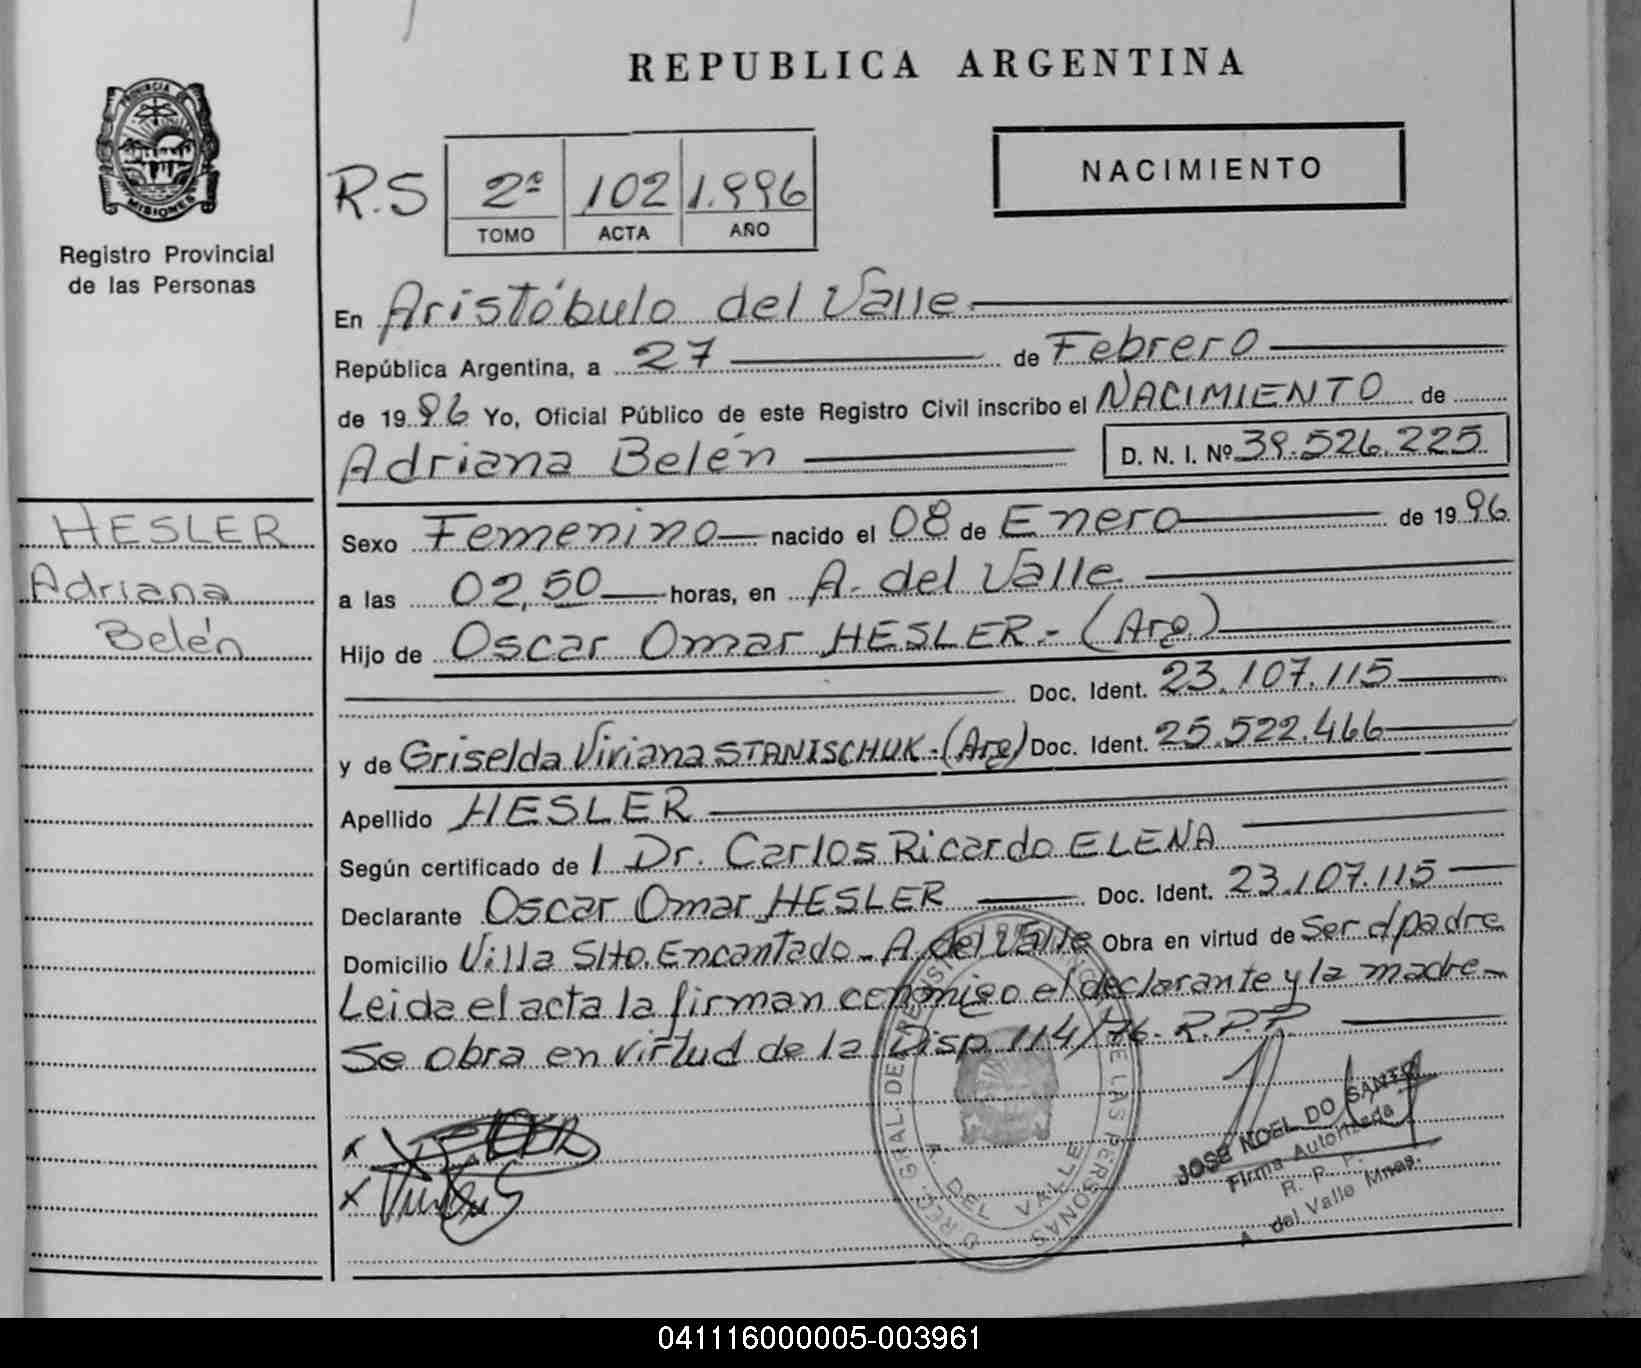 REPUBLICA ARGENTINA
PROVINCIA DE
MISIONES
Registro Provincial
de las Personas
R.S
2º 102 1.996
TOMO ACTA AÑO
NACIMIENTO
En Aristóbulo del Valle
República Argentina, a 27 de Febrero
de 1996 Yo, Oficial Público de este Registro Civil inscribo el NACIMIENTO de
Adriana Belén D. N. I. Nº 39.526.225
HESLER
Adriana
Belén
Sexo Femenino nacido el 08 de Enero de 1996
a las 02,50 horas, en A. del Valle
Hijo de Oscar Omar HESLER - (Arg)
Doc. Ident. 23.107.115
y de Griselda Viviana STANISCHUK - (Arg) Doc. Ident. 25.522.466
Apellido HESLER
Según certificado de l Dr. Carlos Ricardo ELENA
Declarante Oscar Omar HESLER Doc. Ident. 23.107.115
Domicilio Villa Slto. Encantado - A. del Valle Obra en virtud de Ser el padre
Leida el acta la firman conmigo el declarante y la madre -
Se obra en virtud de la Disp. 114/76 - R.P.P
A. DEL VALLE
DE LAS PERSONAS
JOSE NOEL DO SANTO
Firma Autorizada
R. P. P.
A. del Valle Mnes.
041116000005-003961